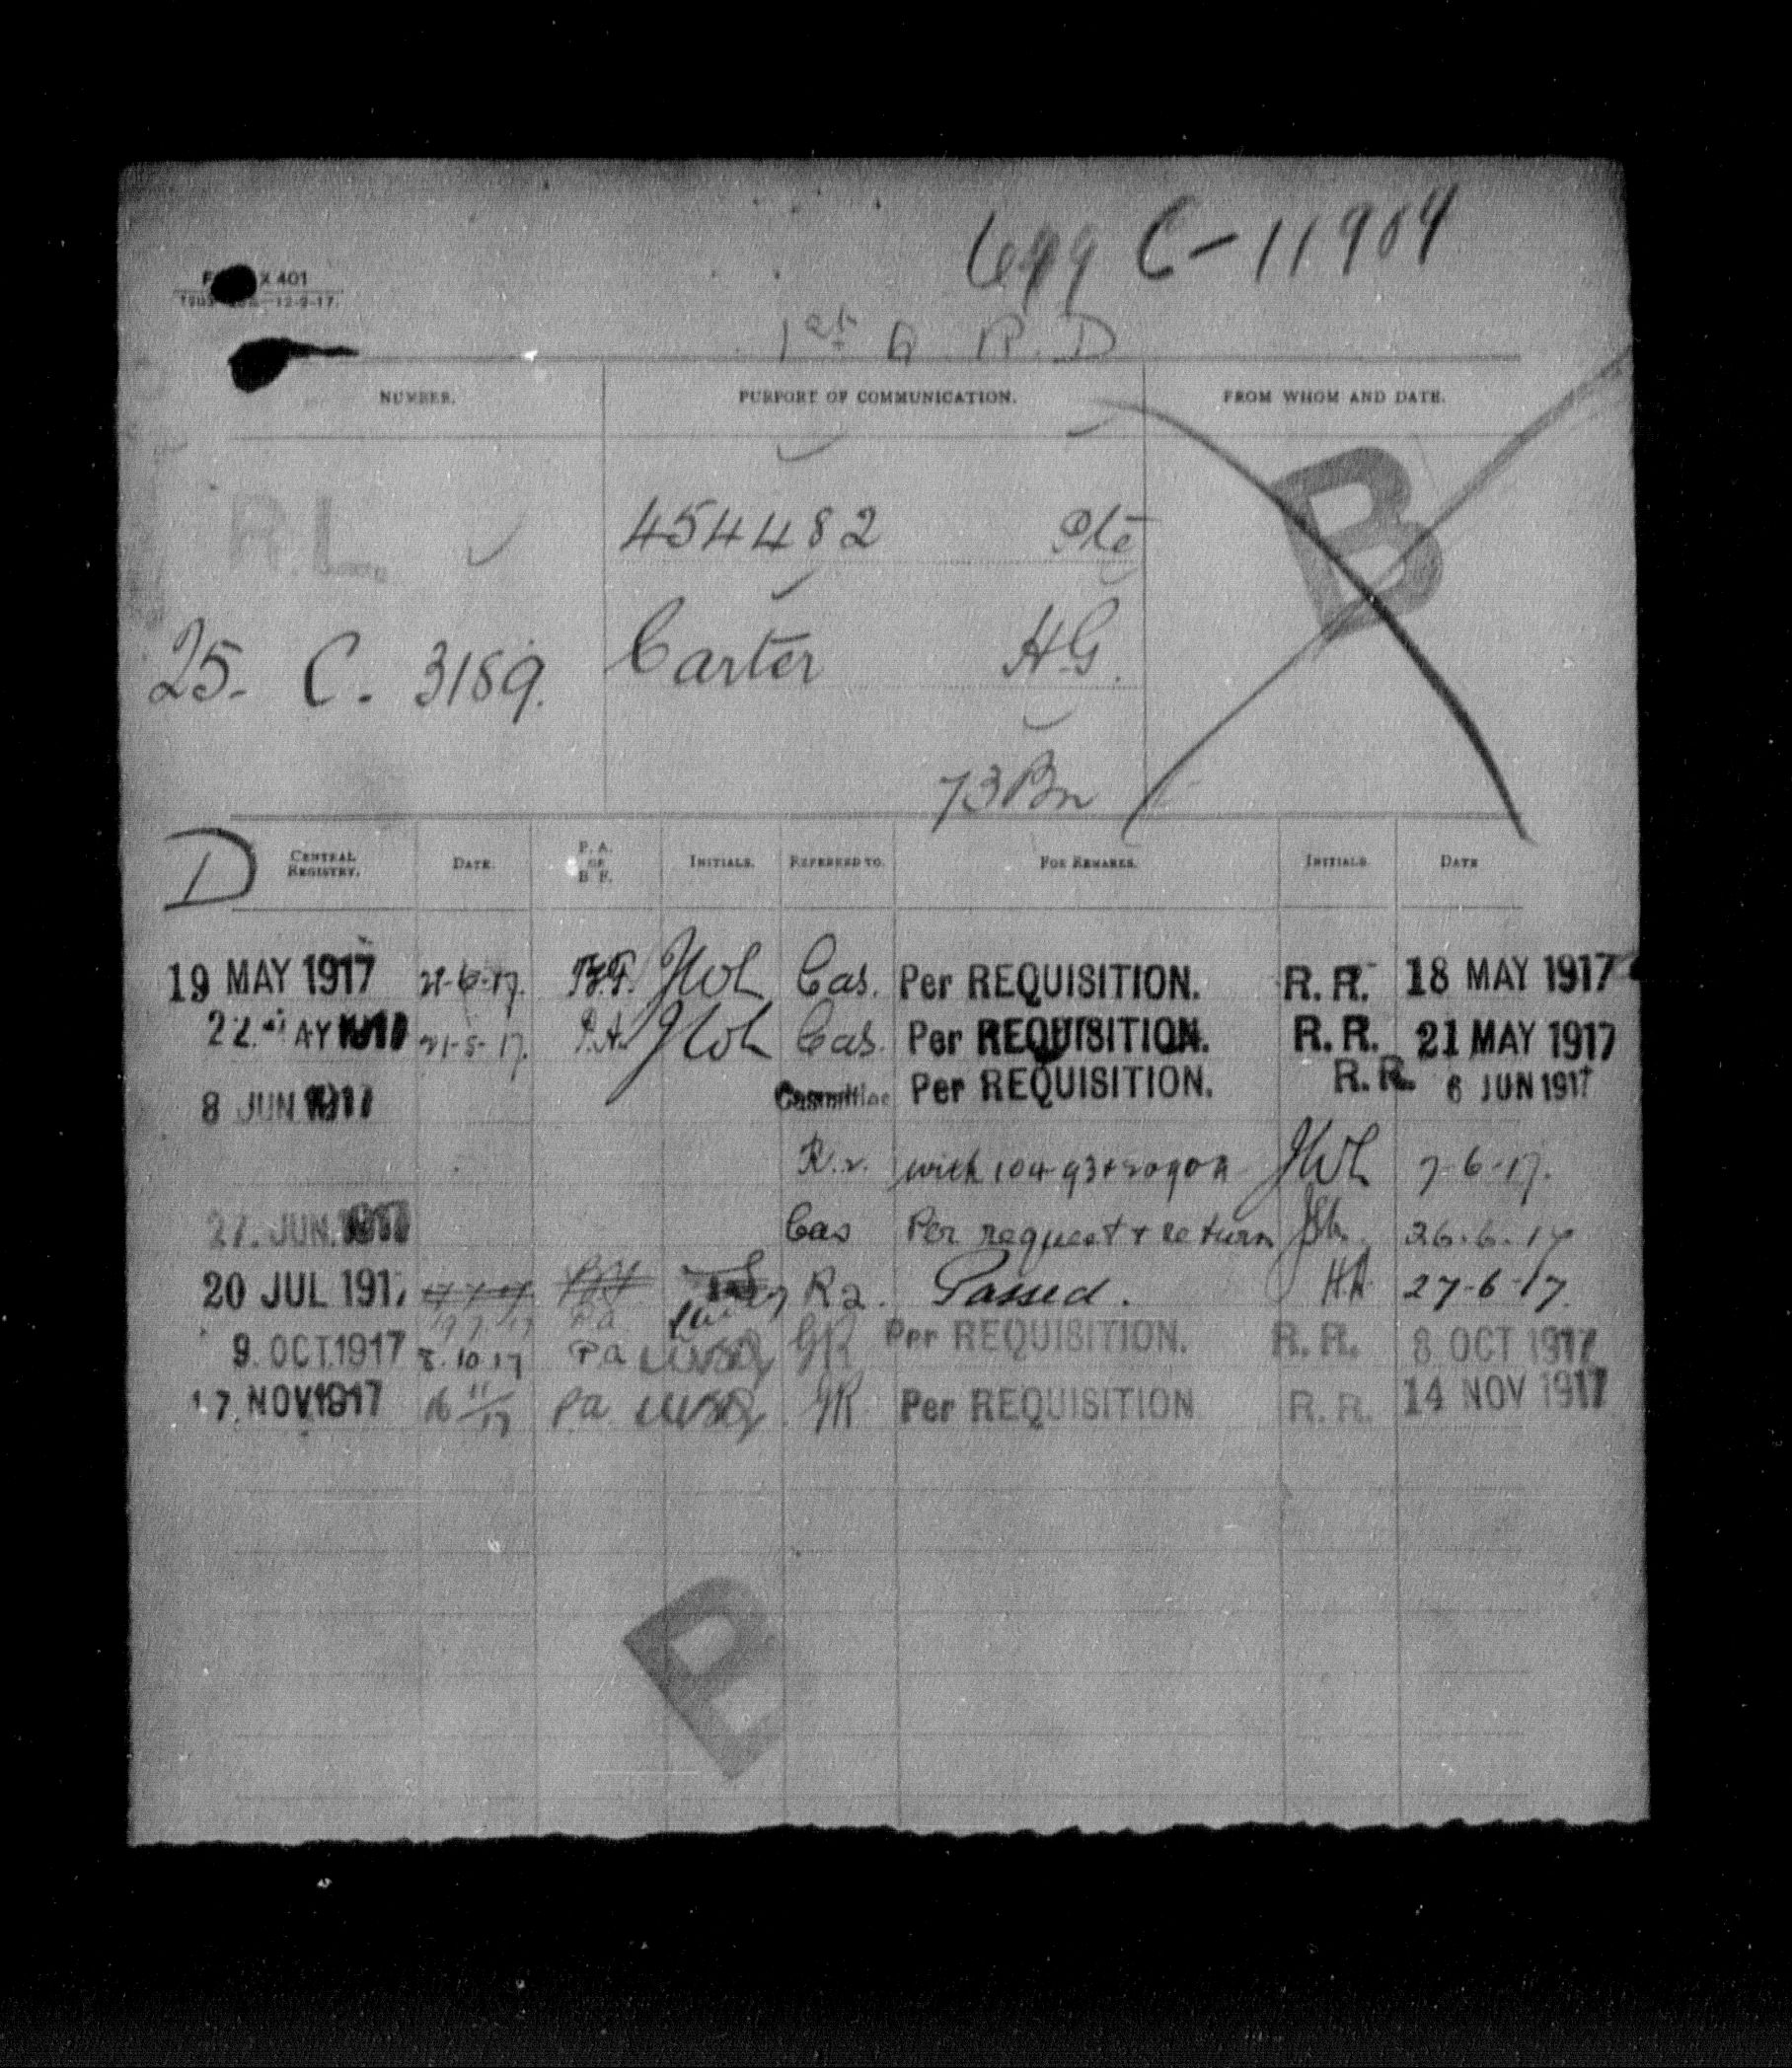 649 C-11904
X 401
12-9-17.
1st R.D
NUMBER. PURPORT OF COMMUNICATION. FROM WHOM AND DATE.
B
R.L.
454482 Pte
25. C. 3189. Carter H.G.
73 Bn
D CENTRAL REGISTRY. DATE. P. A. OR B. F. INITIALS. REFERRED TO. FOR REMARKS. INITIALS. DATE
19 MAY 1917 21-6-17. B.F. JWL Cas. Per REQUISITION. R. R. 18 MAY 1917
22 MAY 1917 21-5-17. P.A. JWL Cas. Per REQUISITION. R. R. 21 MAY 1917
8 JUN 1917 Per REQUISITION. R. R. 6 JUN 1917
R.2. with JWL 7-6-17.
27. JUN. 1917 Cas Per request & return 26-6-17
20 JUL 1917 R2. Passed. H.A. 27-6-17.
19 7 17 Pa
9. OCT. 1917 8.10.17 Pa GR Per REQUISITION. R. R. 8 OCT 1917
17. NOV 1917 16 11/17 Pa GR Per REQUISITION R. R. 14 NOV 1917
P